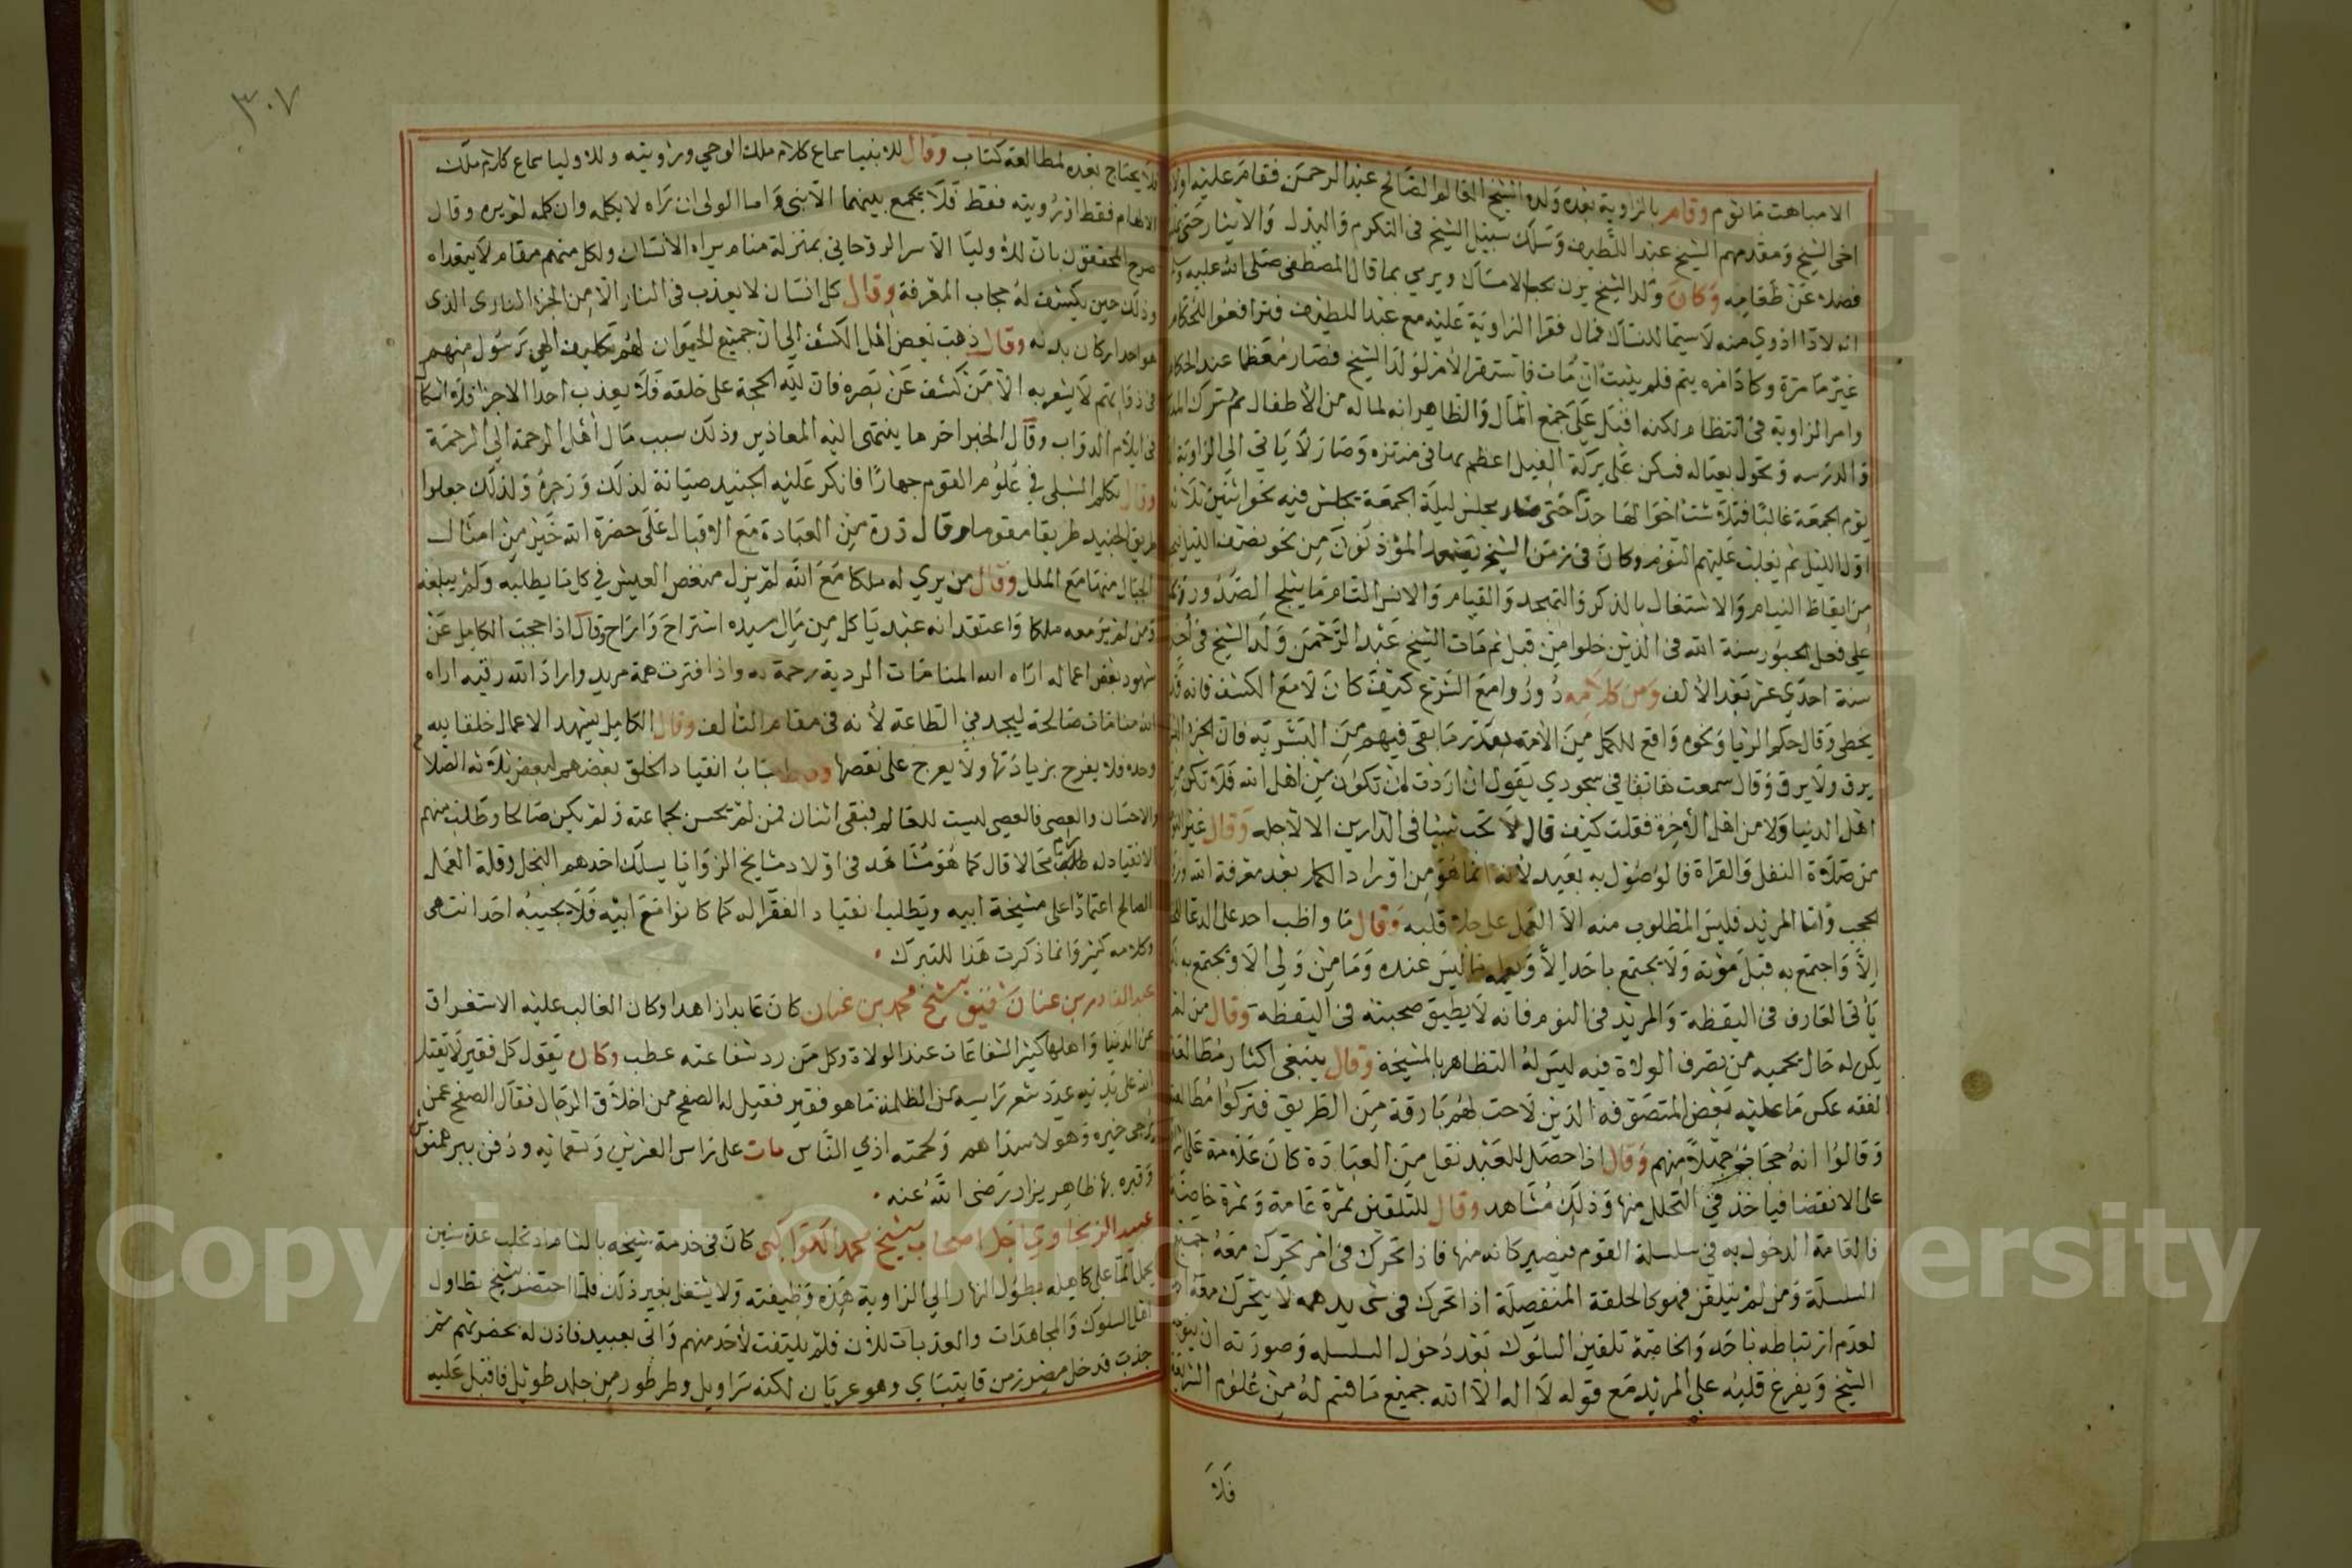 الامباهت مأثوم وقام بالزاوية بعده ولده الشيخ العالم الصالح عبد الرحمن فقام عليه اولاد
اخى الشيخ ومقدمهم الشيخ عبد اللطيف وسلك سبيل الشيخ فى التكرم والبذل والايثار حتى
فضلا عن طعامه وكان ولد الشيخ يزن بحب الامساك ويرمي بما قال المصطفى صلى الله عليه
انه لا داا ادوي منه لا سيما للنساك فمال فقرا الزاوية عليه مع عبد اللطيف فترافعوا للحكام
غير ما مرة وكاد امره يتم فلم ينبت ان مات فاستقر الامر لولد الشيخ فصار معظما عند الحكام
وامر الزاوية فى انتظام لكنه اقبل على جمع المال والظاهر انه لما له من الأطفال ثم ترك
والدرسه وتحول بعياله فسكن على بركة الفيل اعظم بها فى منتزه وصار لا ياتى الى الزاوية
يوم الجمعة غالبا فتلاشت احوالها جدا حتى صار مجلس ليلة الجمعة يجلس فيه نحو اثنين ثلاثة
اول الليل ثم يغلب عليهم النوم وكان فى زمن الشيخ يصعد المؤذنون من نحو نصف الليل
من ايقاظ النيام والاشتغال بالذكر والتهجد والقيام والانس التام ما يثلج الصدور
على فعل الحبور سنة الله فى الذين خلوا من قبل ثم مات الشيخ عبد الرحمن ولد الشيخ فى
سنة احدى عشر بعد الألف ومن كلامه دوروا مع الشرع كيف كان لا مع الكشف فانه قد
يخطى وقال حكم الرؤيا ونحوه واقع للكمل من الأمة بقدر ما بقى فيهم من البشرية فان الجزء
يرق ولا يرق وقال سمعت هاتفا في سجودي يقول ان اردت ان تكون من اهل الله فلا تكن من
اهل الدنيا ولا من اهل الآخرة فقلت كيف قال لا تحب شيئا فى الدارين الا لاجله وقال غير
من صلاة النفل والقراة فالوصول به بعيد لأنه انما هو من اوراد الكمل بعد معرفة الله
الحجب واما المريد فليس المطلوب منه الا العمل على جلاء قلبه وقال ما واظب احد على الدعا
الا واجتمع به قبل موته ولا يجتمع باحد الا ويعلمه ما ليس عنده وما من ولي الا ويجتمع به
يأتى العارف فى اليقظة والمريد فى النوم فانه لا يطيق صحبته فى اليقظة وقال من لم
يكن له حال يحميه من تصرف الولاة فيه ليس له التظاهر بالمشيخة وقال ينبغى اكثار مطالعة
الفقه عكس ما عليه بعض المتصوفة الذين لاحت لهم بارقة من الطريق فتركوا مطالعة
وقالوا انه حجاب جهلا منهم وقال اذا حصل للعبد نفا من العبادة كان علامة على
على الانقضا فياخذ في التحلل منها وذلك مشاهد وقال للتلقين ثمرة عامة وثمرة خاصة
فالعامة الدخول به في سلسلة القوم فيصير كانه منها فاذا تحرك فى امر تحرك معه جميع
السلسلة ومن لم يتلقن فهو كالحلقة المنفصلة اذا تحرك فى شى يدهمه لا يتحرك معه
لعدم ارتباطه باحد والخاصة تلقين السلوك بعد دخول السلسله وصورته ان
الشيخ ويفرغ قلبه على المريد مع قوله لا اله الا الله جميع ما قسم له من علوم الشريعة
فلا
٣٠٧
فلا يحتاج بعده لمطالعة كتاب وقال للانبيا سماع كلام ملك الوحي ورؤيته وللاوليا سماع كلام ملك
الالهام فقط اذ رؤيته فقط فلا يجمع بينهما الا نبى واما الولى ان رآه لا يكلمه وان كلمه لم يره وقال
صرح المحققون بان للاوليا الاسرا الروحانى بمنزلة منام يراه الانسان ولكل منهم مقام لا يتعداه
وذلك حين يكشف له حجاب المعرفة وقال كل انسان لا يعذب فى النار الا من الجزء النارى الذى
هو احد اركان بدنه وقال ذهب بعض اهل الكشف الى ان جميع الحيوان لهم تكليف الهي برسول منهم
فى ذواتهم لا يشعر به الا من كشف عن بصره فان لله الحجة على خلقه فلا يعذب احدا الا جزا فلا اشكال
فى ايلام الدواب وقال الجبر اخر ما ينتهى اليه المعاذير وذلك سبب مال أهل الرحمة الى الرحمة
وقال تكلم الشبلى في علوم القوم جهارا فانكر عليه الجنيد صيانة لذلك وزجره ولذلك جعلوا
طريق الجنيد طريقا مقوما وقال ذرة من العبادة مع الاقبال على حضرة الله خير من امثال
الجبال منها مع الملل وقال من يري له ملكا مع الله لم يزل منغص العيش في كل ما يطلبه ولم يبلغه
ومن لم ير معه ملكا واعتقد انه عبد ياكل من مال سيده استراح واراح وقال اذا حجب الكامل عن
شهود بعض اعماله اراه الله المنامات الردية رحمة به واذا فترت همة مريد واراد الله رقيه اراه
الله منامات صالحة ليجد في الطاعة لأنه فى مقام التألف وقال الكامل يشهد الاعمال خلقا لله
وحده فلا يفرح بزيادتها ولا يعرج على نقصها وقال اسباب انقياد الخلق بعضهم لبعض ثلاثة الصلاح
والاحسان والعصى فالعصى ليست للعالم فبقى اثنان فمن لم يحسن بجماعته ولم يكن صالحا وطلب منهم
الانقياد له طلب محالا قال كما هو مشاهد فى اولاد مشايخ الزوايا يسلك احدهم البخل وقلة العمل
الصالح اعتمادا على مشيخة ابيه ويطلب انقياد الفقرا له كما كانوا مع ابيه فلا يجيبه احد انتهى
وكلامه كثير وانما ذكرت هذا للتبرك .
عبد القادر بن عنان شقيق الشيخ محمد بن عنان كان عابدا زاهدا وكان الغالب عليه الاستغراق
عن الدنيا واهلها كثير الشفاعات عند الولاة وكل من رد شفاعته عطب وكان يقول كل فقير لا يقتل
الله على يديه عدد شعر راسه من الظلمة ما هو فقير فقيل له الصفح من اخلاق الرجال فقال الصفح عمن
يرجى خيره وهولا سداهم ولحمته اذي الناس مات على راس العشرين وتسعمائة ودفن ببرهمتوش
وقبره بها ظاهر يزار رضى الله عنه .
عبيد الزنجاوي اجل اصحاب الشيخ محمد الكواكبى كان فى خدمة شيخه بالشام اذ تحلب عدة سنين
يحمل الما على كاهله بطول النهار الى الزاوية هذه وظيفته ولا يشتغل بغير ذلك فلما احتضر الشيخ تطاول
اهل السلوك والمجاهدات والعذبات للاذن فلم يلتفت لأحد منهم واتى بعبيد فاذن له بحضرتهم ثم
جذب فدخل مصر زمن قايتباي وهو عريان لكنه سراويل وطرطور من جلد طويل فاقبل عليه
Copyright © King Saud University